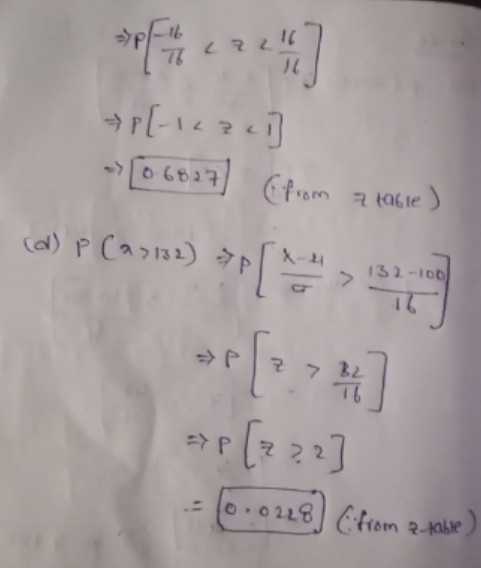 ⇒P[-16/16 < z < 16/16]
⇒ P[-1 < z < 1]
⇒ 0.6827 (∵from z table)
(d) P(x>132) ⇒P[x-μ/σ > 132-100/16]
⇒P[z > 32/16]
⇒ P[z > 2]
= 0.0228 (∵from z-table)